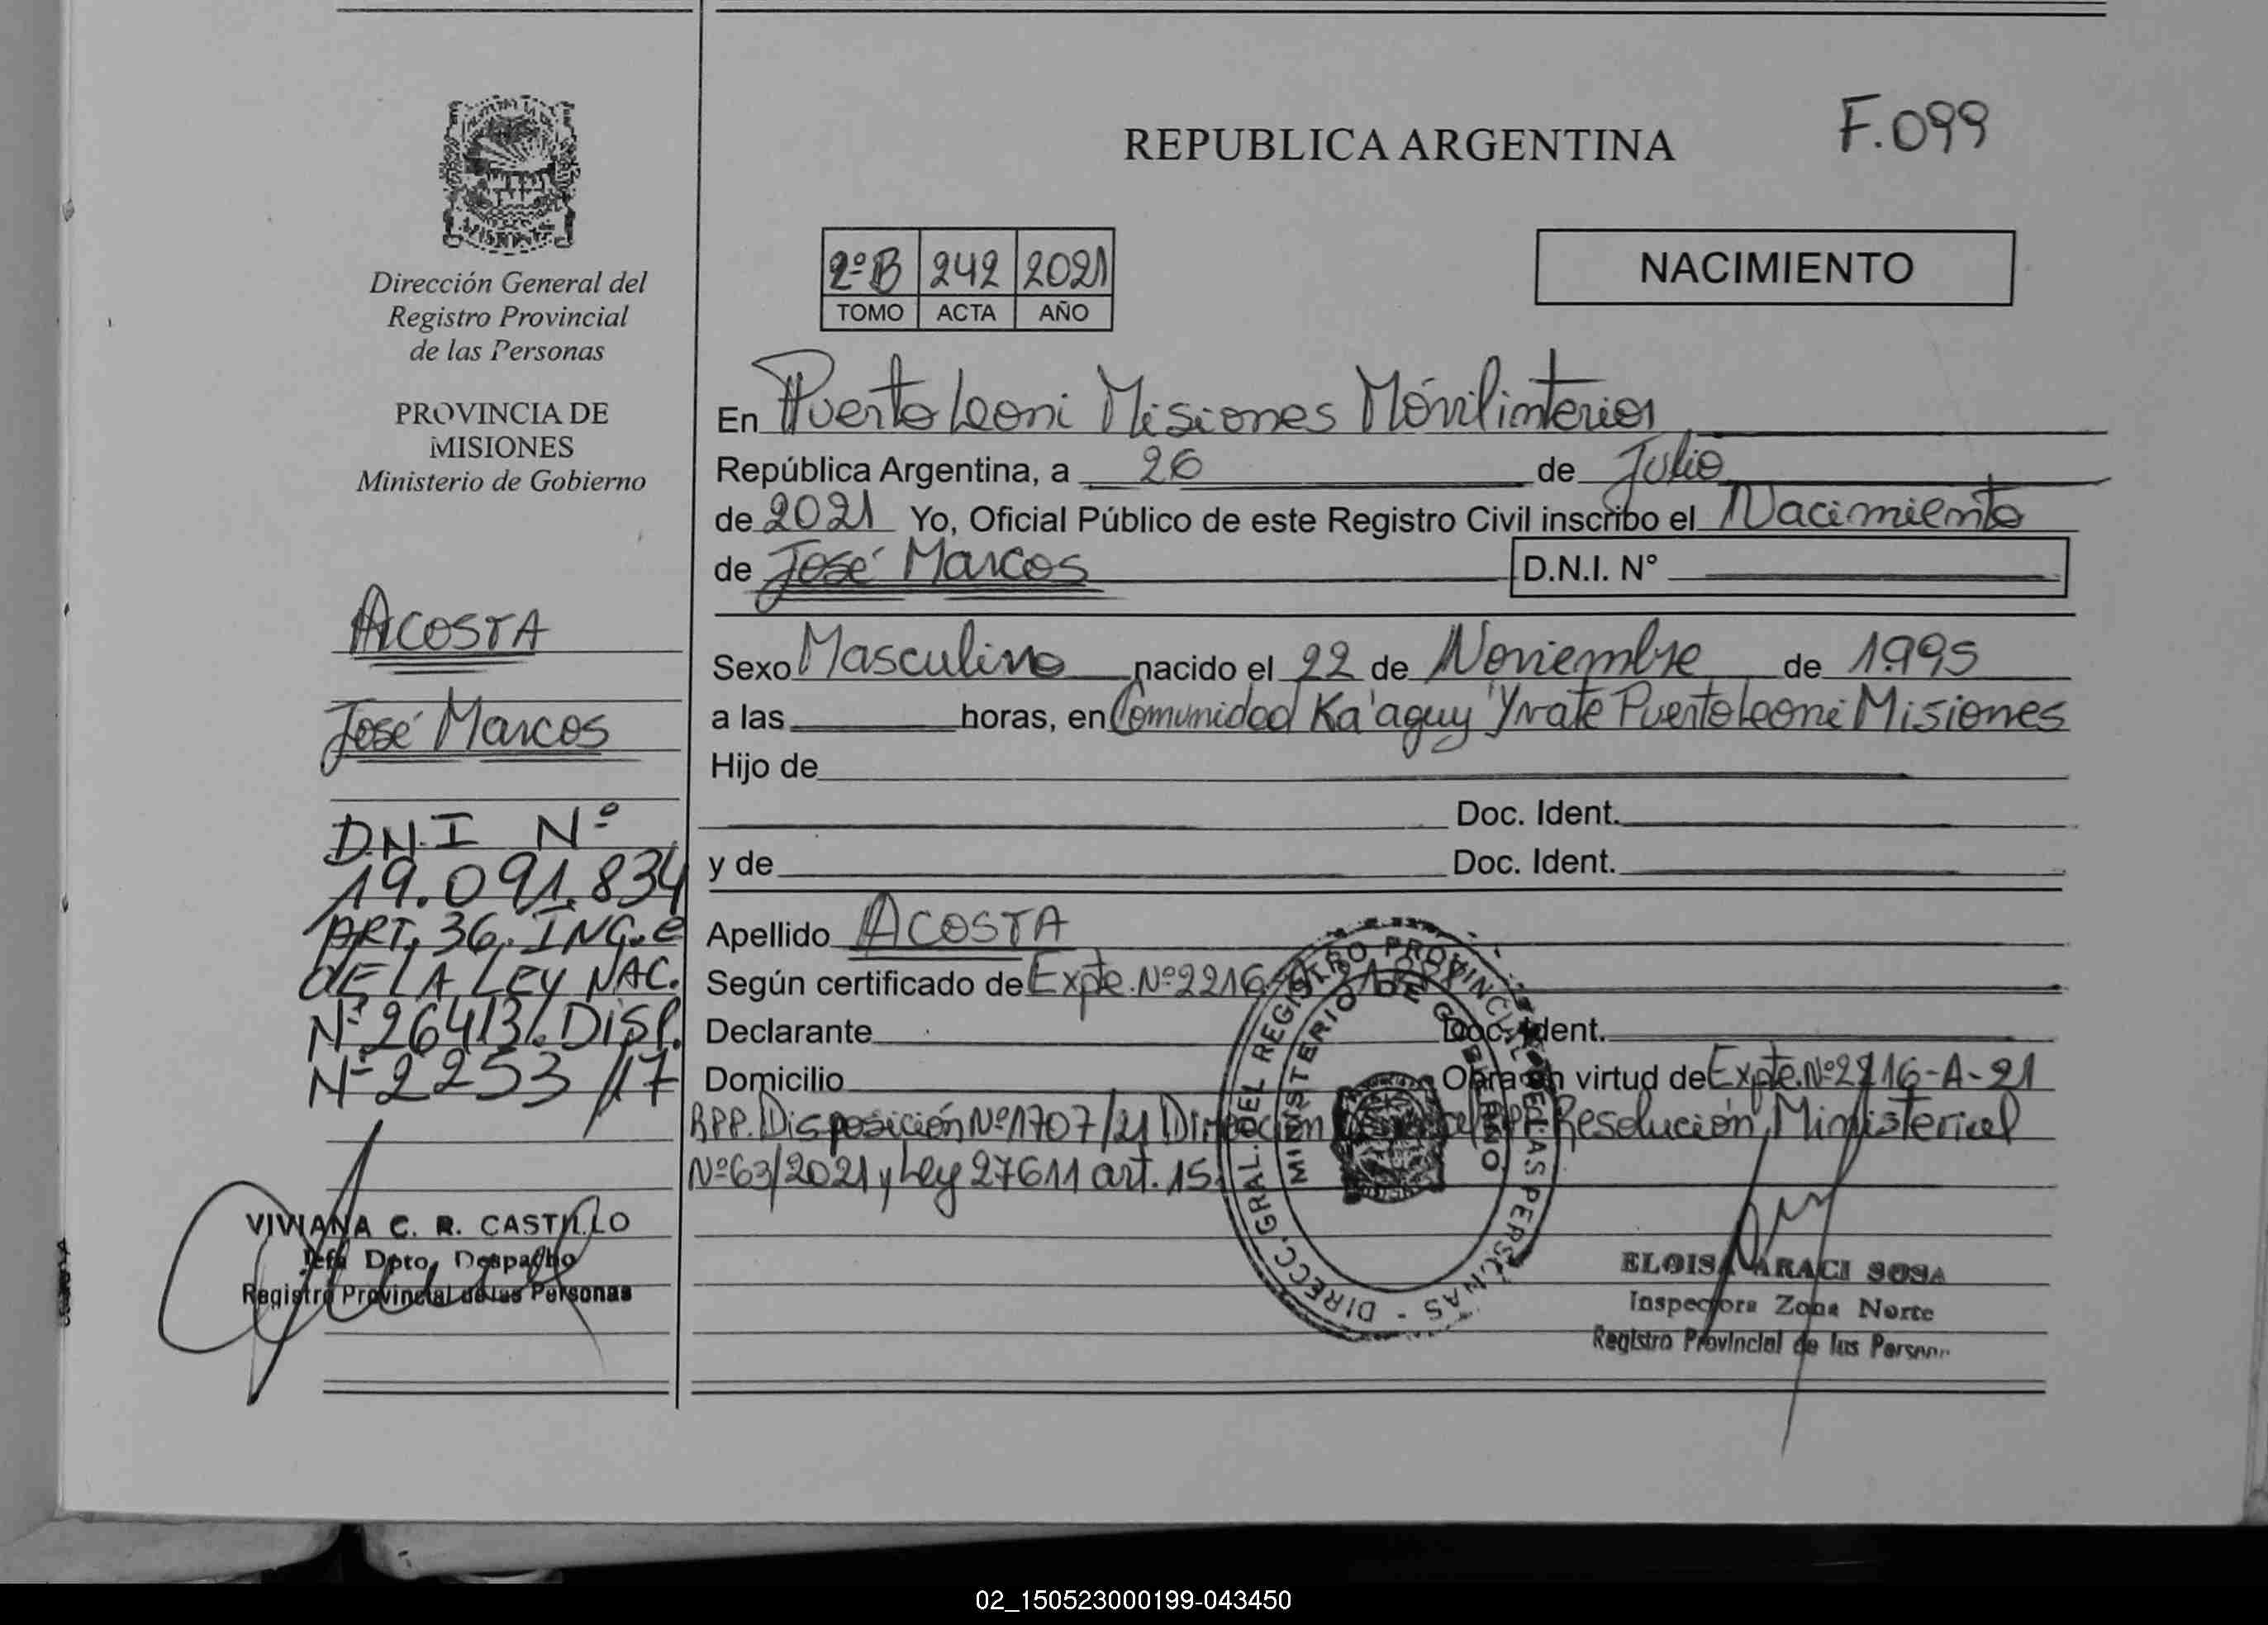 REPUBLICA ARGENTINA
F.099
Dirección General del
Registro Provincial
de las Personas
PROVINCIA DE
MISIONES
Ministerio de Gobierno
ACOSTA
José Marcos
D.N.I Nº
19.091.834
ART. 36. INC. e
DE LA LEY NAC.
Nº 26413/. DISP.
Nº 2253/17
VIVIANA C. R. CASTILLO
Jefa Dpto. Despacho
Registro Provincial de las Personas
2ºB 242 2021
TOMO ACTA AÑO
NACIMIENTO
En Puerto Leoni Misiones Móvil interior
República Argentina, a 26 de Julio
de 2021 Yo, Oficial Público de este Registro Civil inscribo el Nacimiento
de José Marcos D.N.I. N°
Sexo Masculino nacido el 22 de Noviembre de 1995
a las horas, en Comunidad Ka'aguy Yvate Puerto Leoni Misiones
Hijo de
Doc. Ident.
y de Doc. Ident.
Apellido ACOSTA
Según certificado de Expte. Nº 2216
Declarante Doc. Ident.
Domicilio Obra en virtud de Expte. Nº 2216-A-21
RPP. Disposición Nº 1707/21 Dirección RPP. Resolución Ministerial
Nº 63/2021 y Ley 27611 art. 15.
DIRECC. GRAL. DEL REGISTRO PROVINCIAL DE LAS PERSONAS -
MINISTERIO DE GOBIERNO
ELOISA ARACI SOSA
Inspectora Zona Norte
Registro Provincial de las Person
02_150523000199-043450